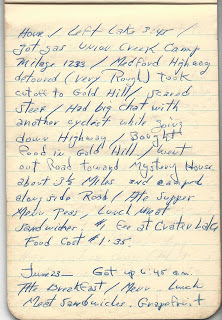 Hour / Left Lake 3:45 /
got gas Union Creek Camp
Milage 1233 / Medford Highway
detoured (very Rough) took
cutoff to Gold Hill / scared
steer / Had big chat with
another cyclest while going
down Highway / Bought
Food in Gold Hill / went
out Road toward Mystery House
about 3½ Miles and camped
along side Road / Ate Supper
Menu Peas, Lunch Meat
Sandwiches. $1 Fee at Crater Lake
Food Cost $1.35.
June 23 — Got up 6:45 am.
Ate Breakfast / Menu - Lunch
Meet Sandwicks. Grapefruit